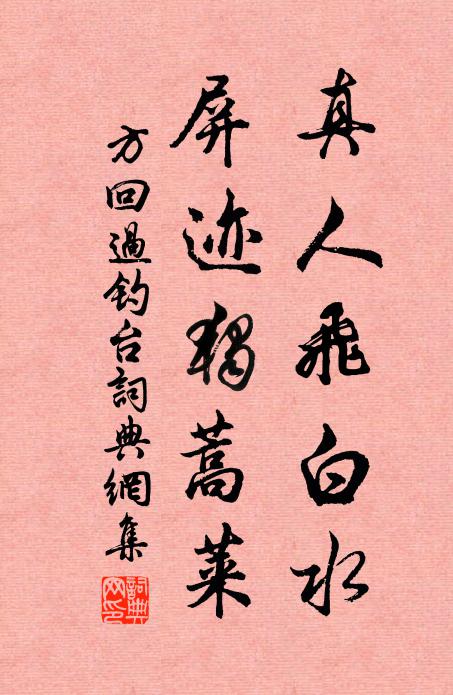 真人飛白水
屏迹獨蒿萊
方回過釣台詞典網集
詞典網印